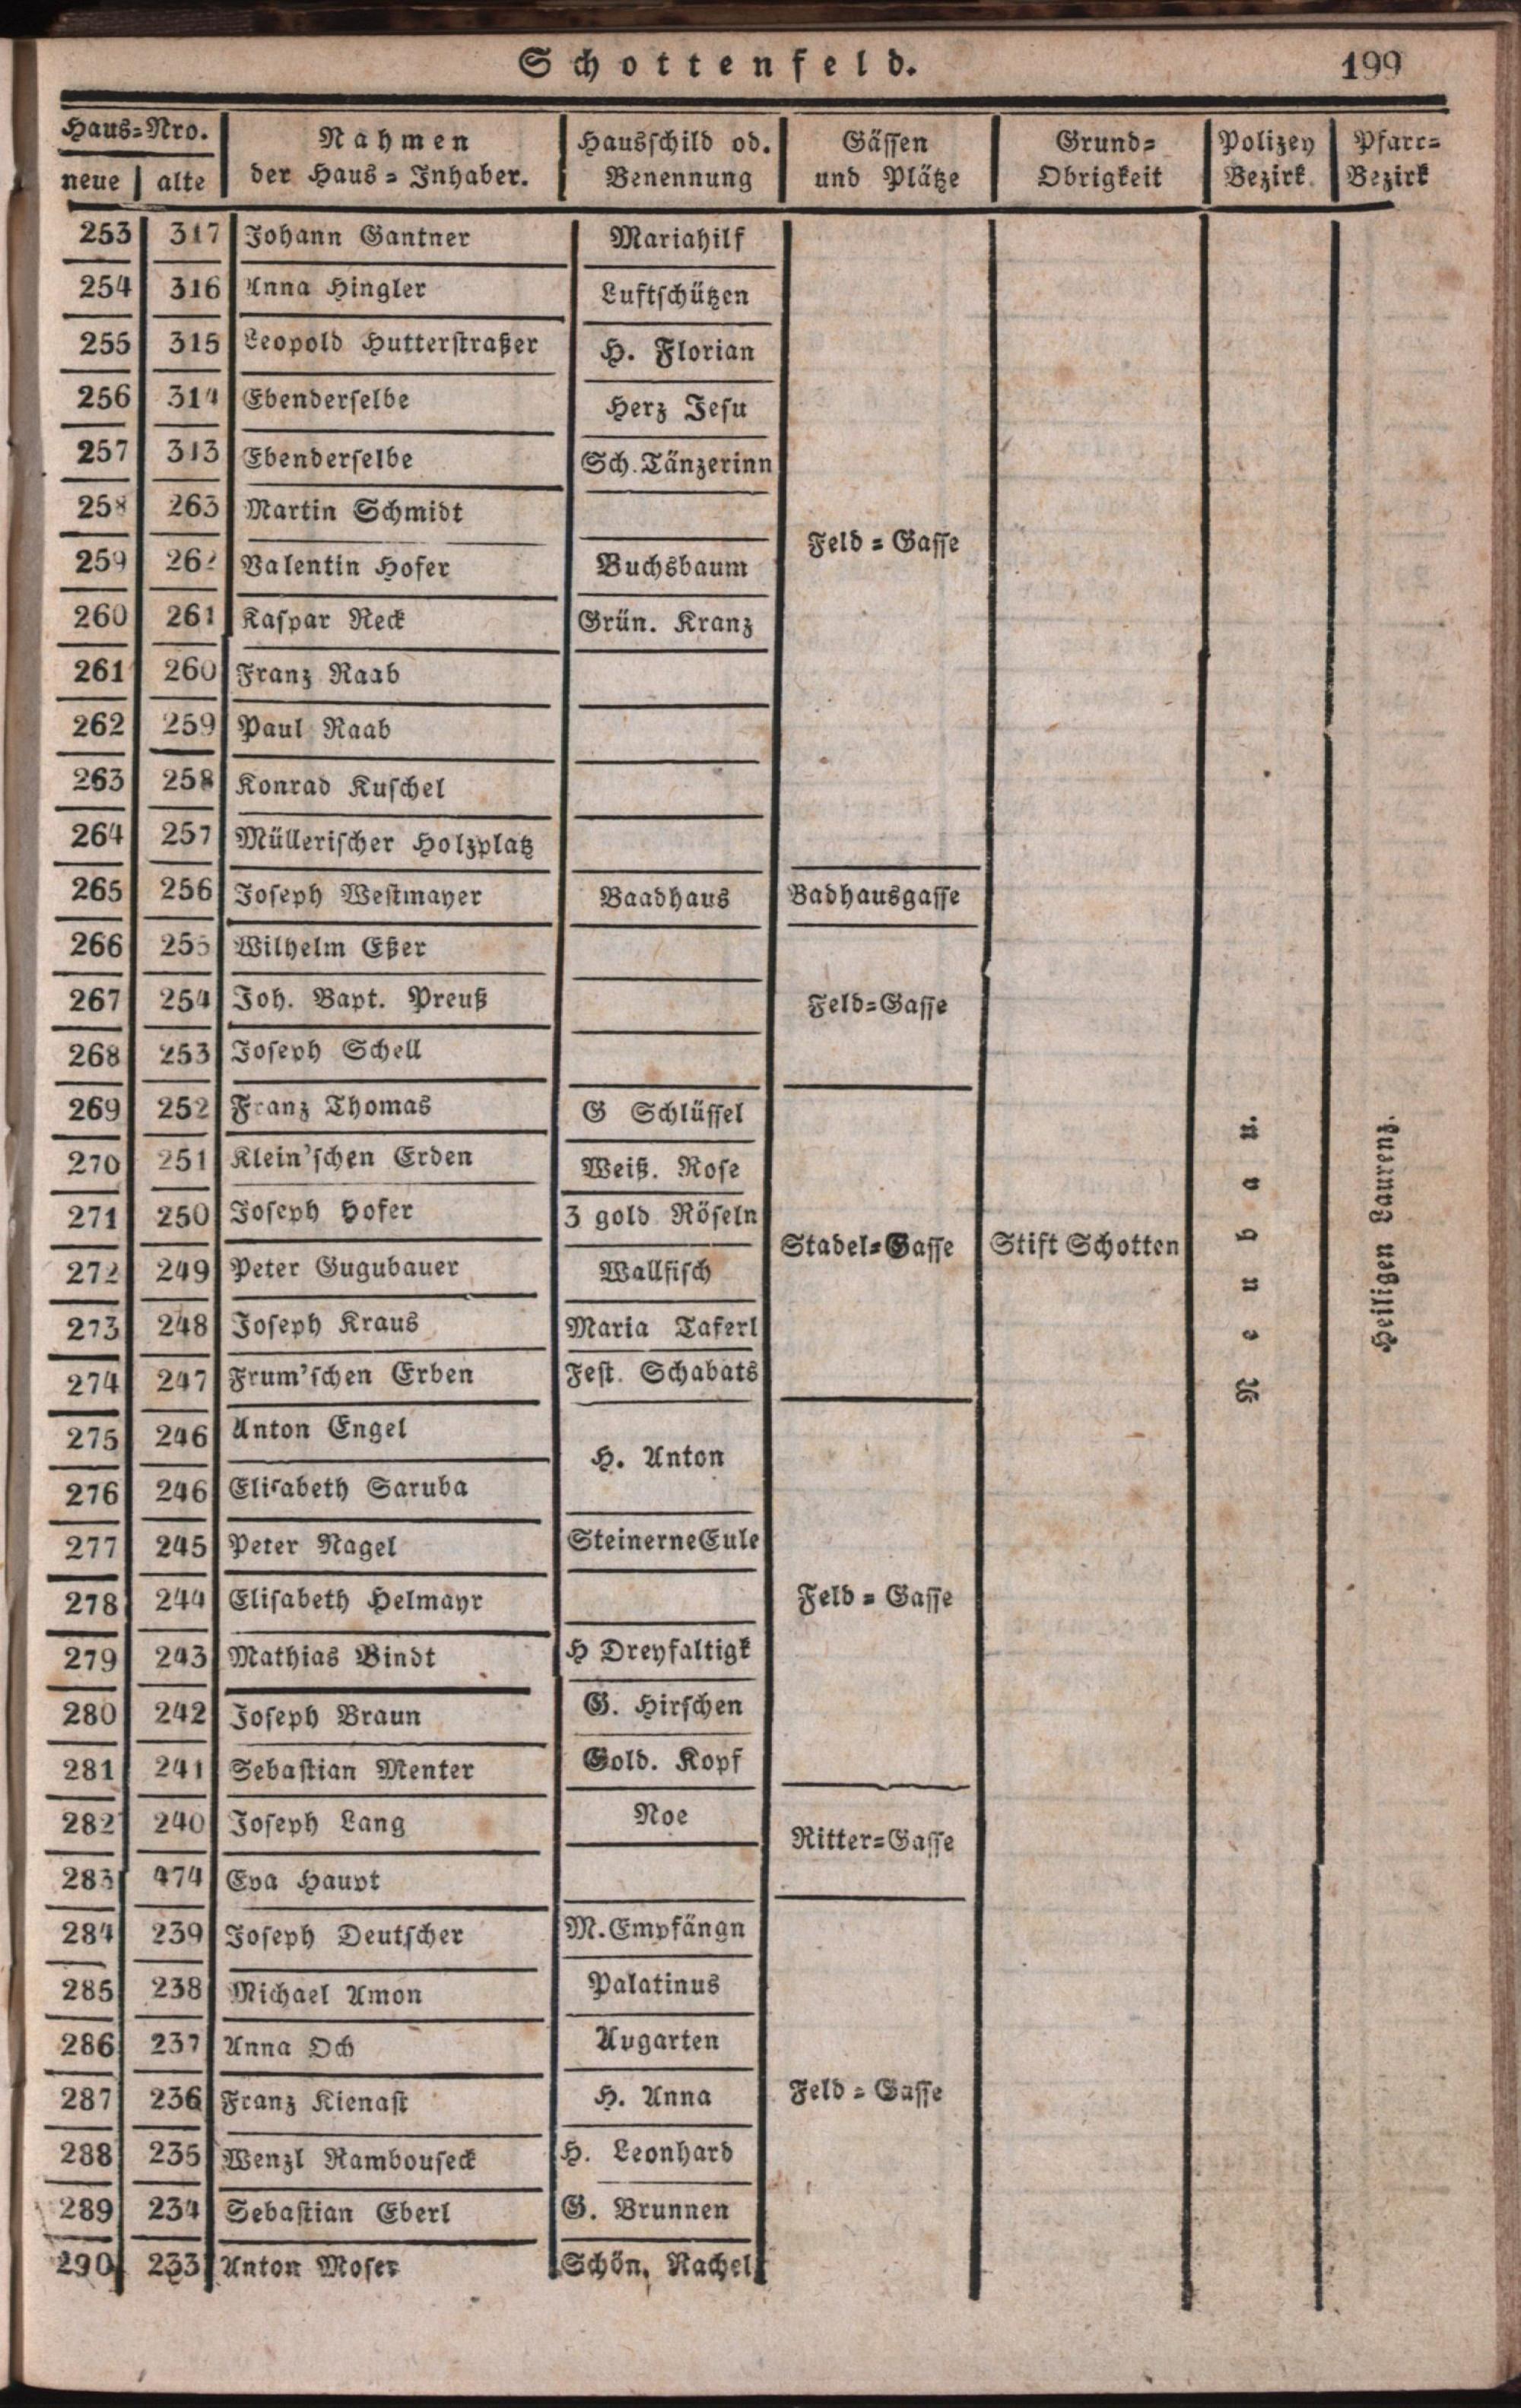 Schottenfeld. 199
Haus-Nro. Nahmen Hausschild od. Gässen Grund- Polizey Pfarr-
neue alte der Haus-Inhaber. Benennung und Plätze Obrigkeit Bezirk. Bezirk
253 317 Johann Gantner Mariahilf
254 316 Anna Hingler Luftschützen
255 315 Leopold Hutterstraßer H. Florian
256 314 Ebenderselbe Herz Jesu
257 313 Ebenderselbe Sch. Tänzerinn
258 263 Martin Schmidt
Feld-Gasse
259 262 Valentin Hofer Buchsbaum
260 261 Kaspar Reck Grün. Kranz
261 260 Franz Raab
262 259 Paul Raab
263 258 Konrad Kuschel
264 257 Müllerischer Holzplatz
265 256 Joseph Westmayer Baadhaus Badhausgasse
266 255 Wilhelm Eßer
267 254 Joh. Bapt. Preuß Feld-Gasse
268 253 Joseph Schell
269 252 Franz Thomas G Schlüssel
270 251 Klein'schen Erden Weiß. Rose
271 250 Joseph Hofer 3 gold Röseln
Stadel-Gasse Stift Schotten Neubau. Heiligen Laurenz.
272 249 Peter Gugubauer Wallfisch
273 248 Joseph Kraus Maria Taferl
274 247 Frum'schen Erben Fest. Schabats
275 246 Anton Engel
H. Anton
276 246 Elisabeth Saruba
277 245 Peter Nagel Steinerne Eule
278 244 Elisabeth Helmayr Feld-Gasse
279 243 Mathias Bindt H Dreyfaltigk
280 242 Joseph Braun G. Hirschen
281 241 Sebastian Menter Gold. Kopf
282 240 Joseph Lang Noe
Ritter-Gasse
283 474 Eva Haupt
284 239 Joseph Deutscher M. Empfängn
285 238 Michael Amon Palatinus
286 237 Anna Och Augarten
287 236 Franz Kienast H. Anna Feld-Gasse
288 235 Wenzl Rambouseck H. Leonhard
289 234 Sebastian Eberl G. Brunnen
290 233 Anton Moser Schön. Rachel